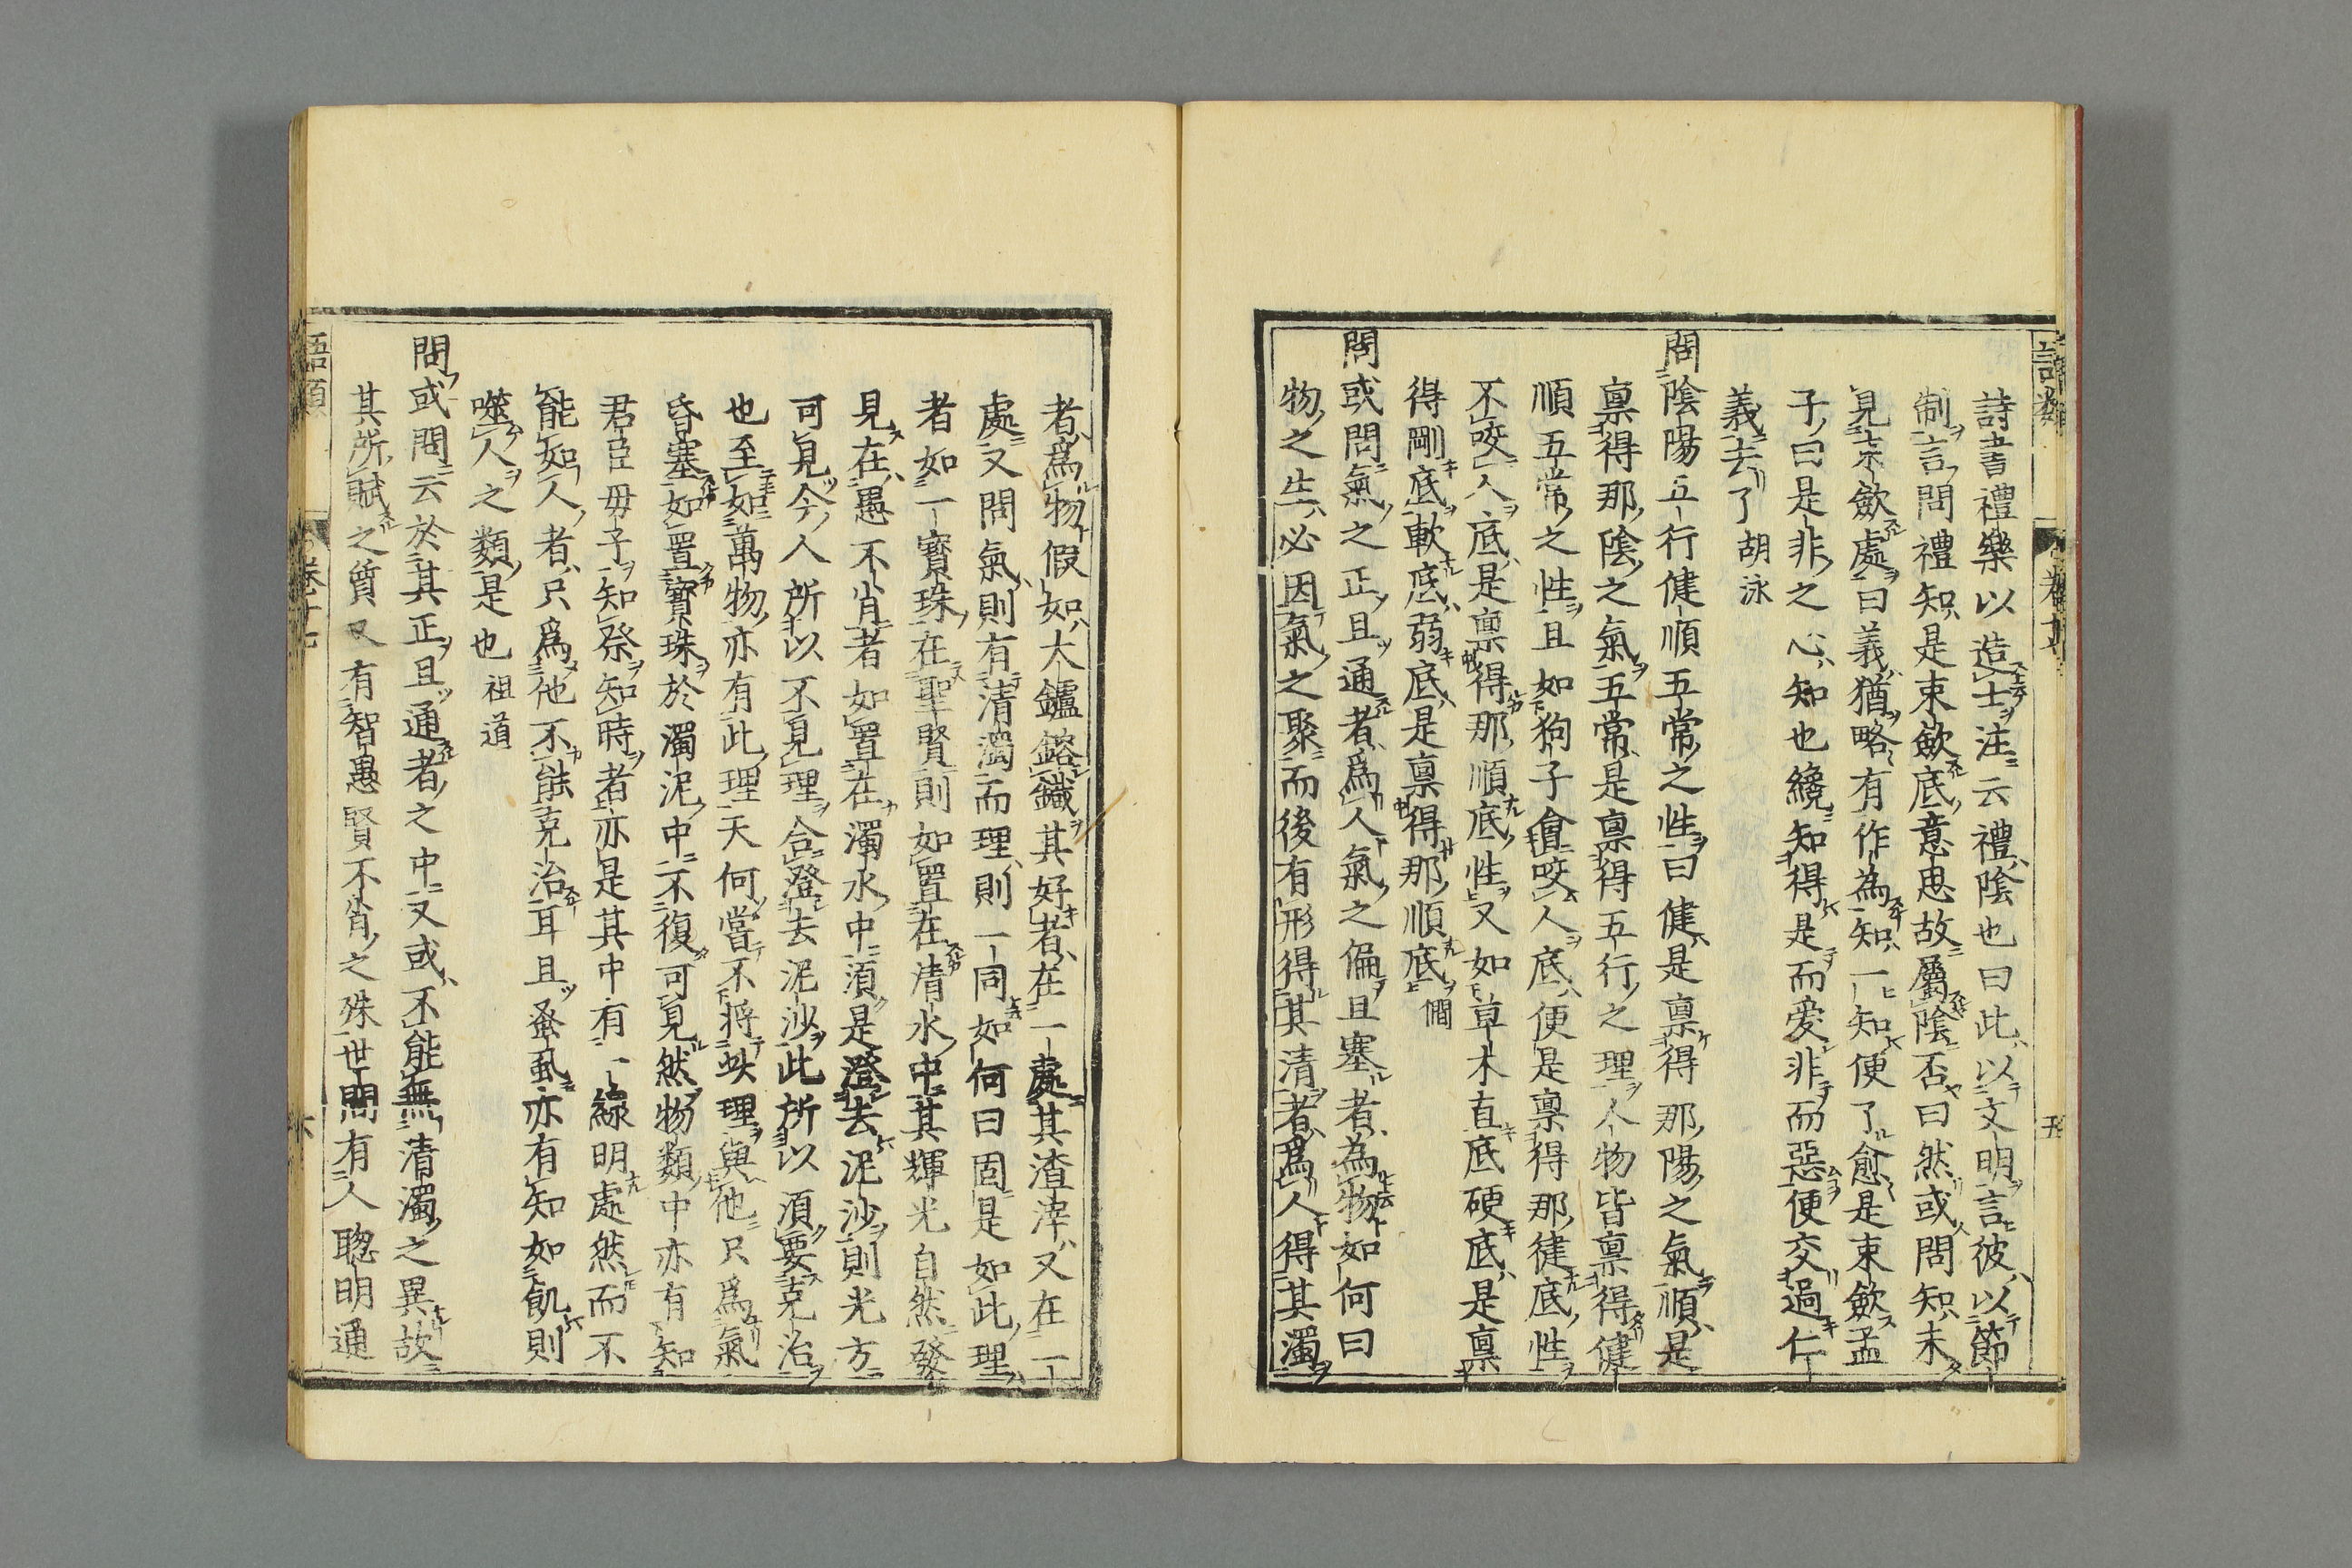 語類 卷十七 五
詩書禮樂以造士注云禮陰也曰此以文明言彼以節
制言問禮知是束斂底意思故屬陰否曰然或問知未
見束斂處曰義猶略有作為知一知便了愈是束斂孟
子曰是非之心知也纔知得是而愛非而惡便交過仁
義去了胡泳
問陰陽五行健順五常之性曰健是禀得那陽之氣順是
禀得那陰之氣五常是禀得五行之理人物皆禀得健
順五常之性且如狗子會咬人底便是禀得那健底性
不咬人底是禀得那順底性又如草木直底硬底是禀
得剛底軟底弱底是禀得那順底僩
問或問氣之正且通者爲人氣之偏且塞者為物如何曰
物之生必因氣之聚而後有形得其清者爲人得其濁
者爲物假如大鑪鎔鐵其好者在一處其渣滓又在一
處又問氣則有清濁而理則一同如何曰固是如此理
者如一寶珠在聖賢則如置在清水中其輝光自然發
見在愚不肖者如置在濁水中須是澄去泥沙則光方
可見今人所以不見理合澄去泥沙此所以須要克治
也至如萬物亦有此理天何嘗不將此理與他只爲氣
昏塞如置寶珠於濁泥中不復可見然物類中亦有知
君臣母子知祭知時者亦是其中有一線明處然而不
能如人者只爲他不能克治耳且蚤虱亦有知如飢則
噬人之類是也祖道
問或問云於其正且通者之中又或不能無清濁之異故
其所賦之質又有智愚賢不肖之殊世間有人聰明通
語類 卷十七 六